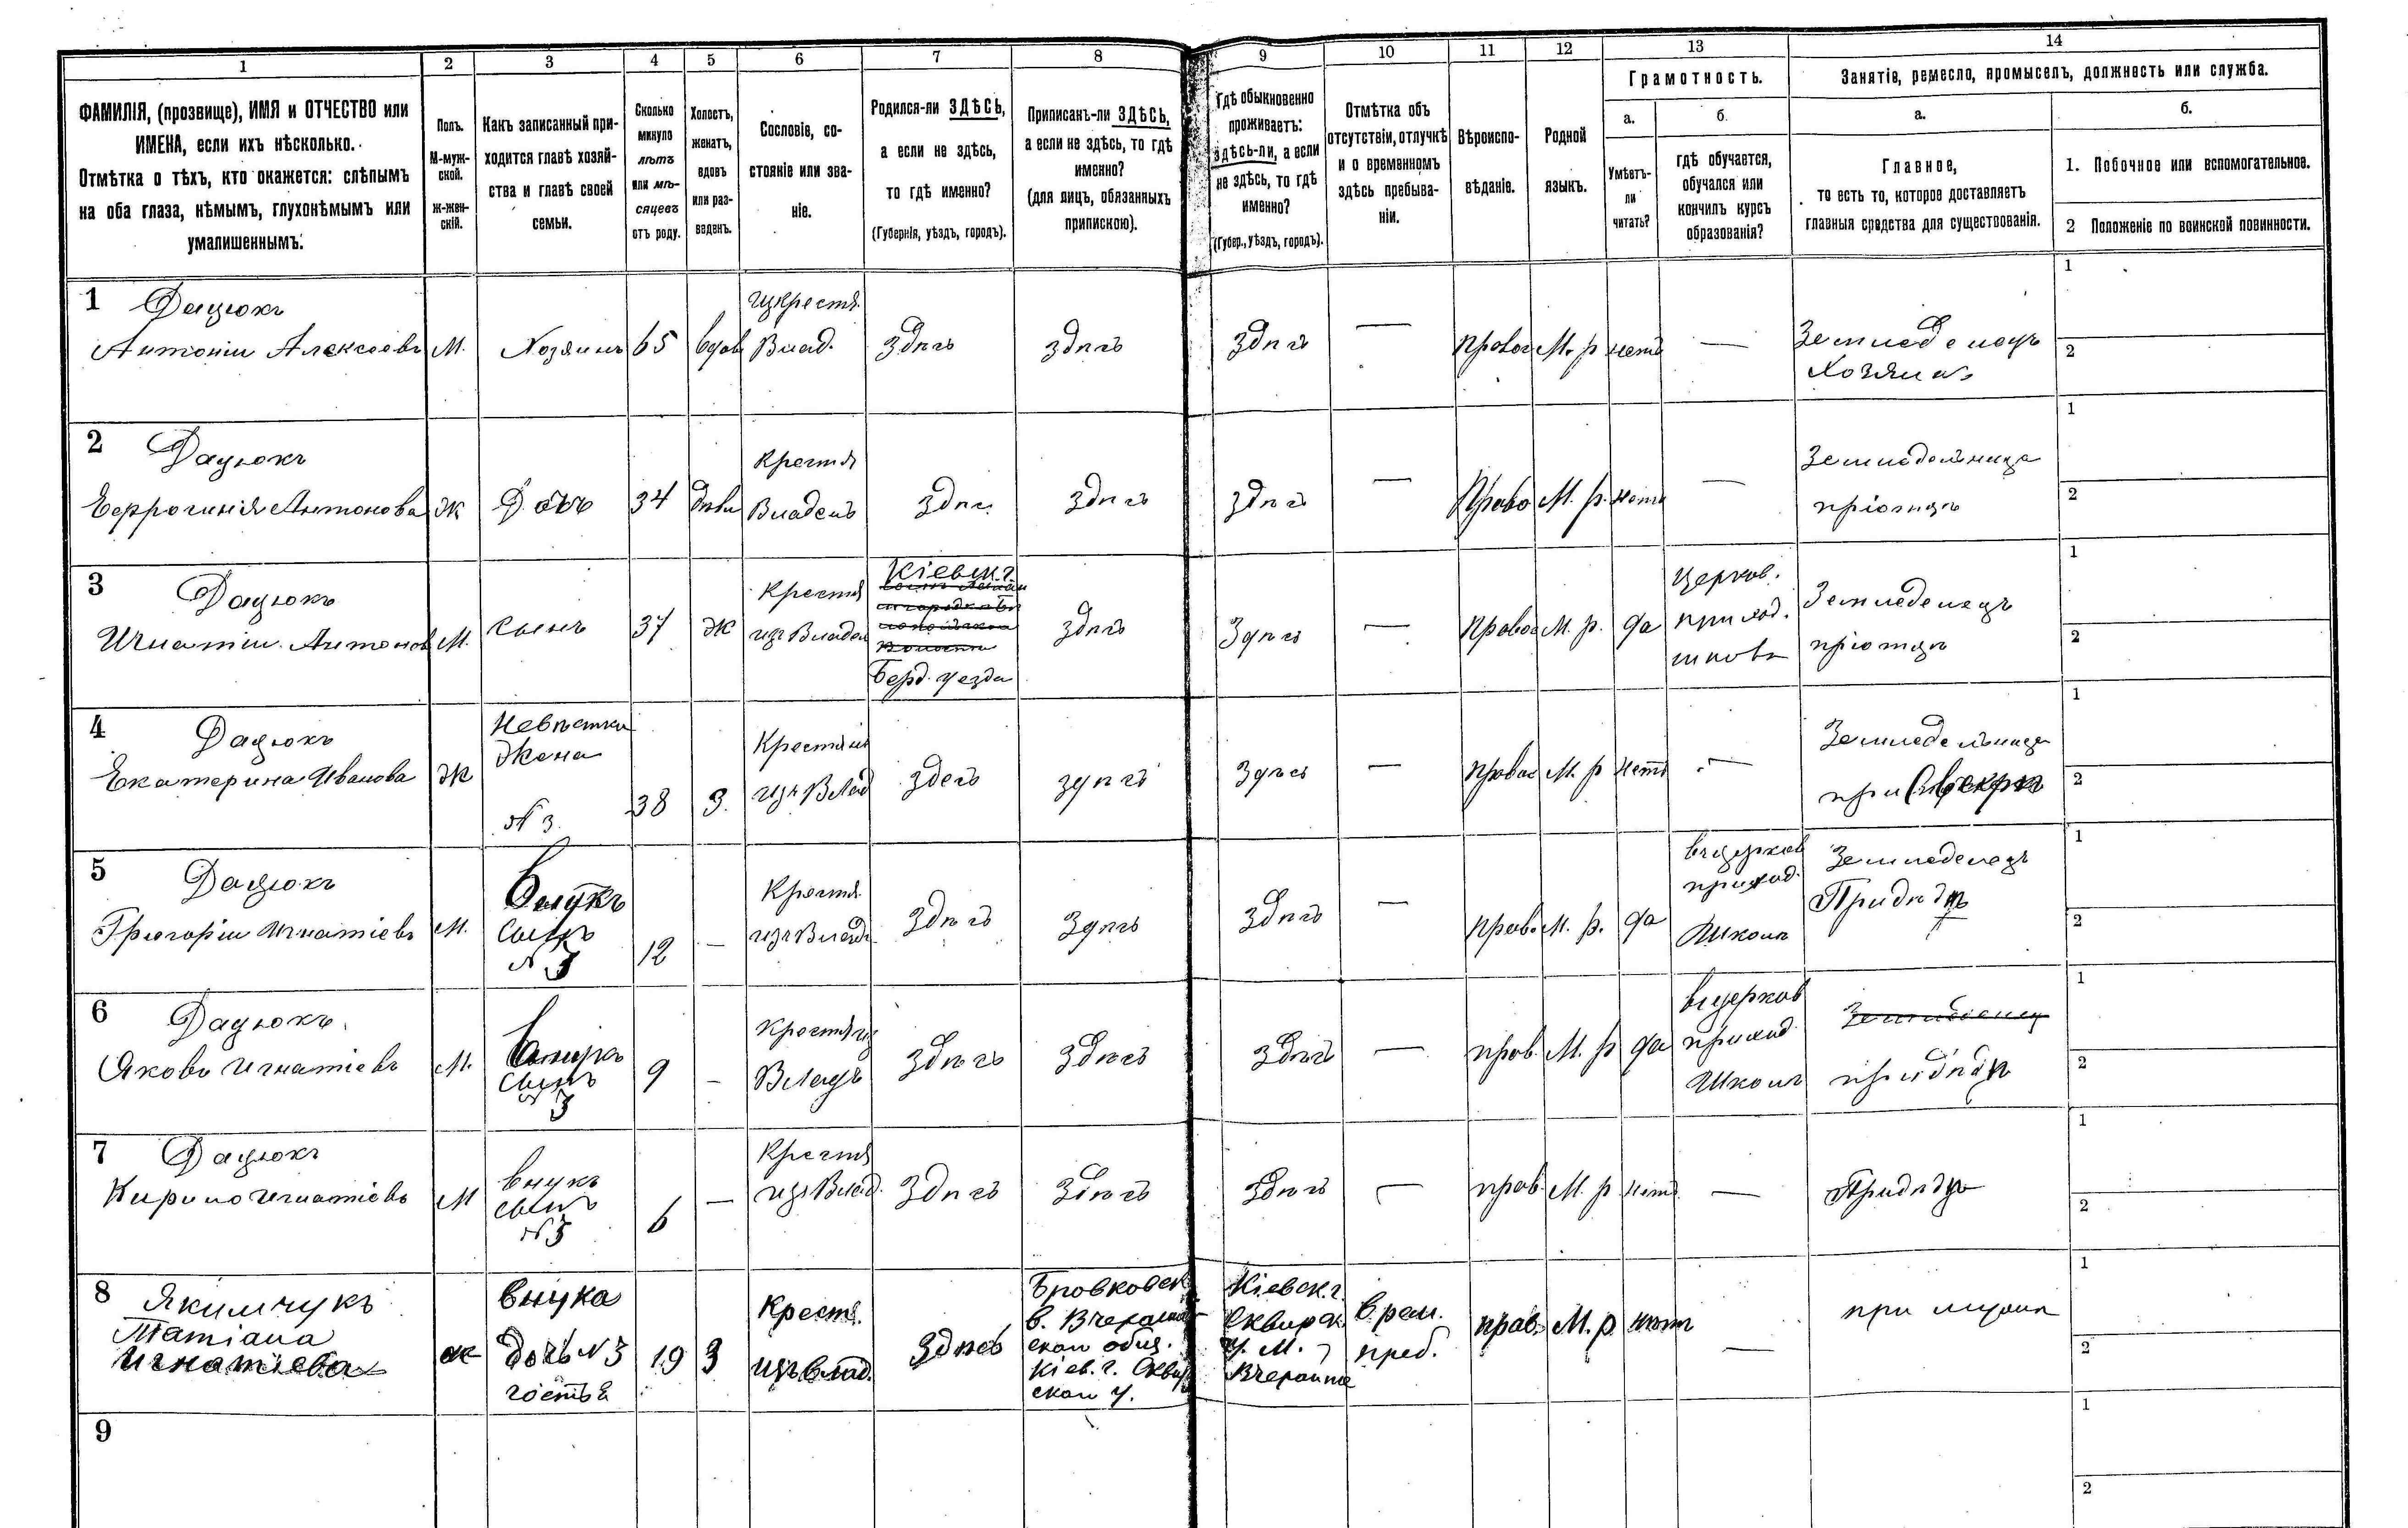 1 2 3 4 5 6 7 8 9 10 11 12 13 14
ФАМИЛІЯ, (прозвище), ИМЯ и ОТЧЕСТВО или
ИМЕНА, если ихъ нѣсколько.
Отмѣтка о тѣхъ, кто окажется: слѣпымъ
на оба глаза, нѣмымъ, глухонѣмымъ или
умалишеннымъ.
Полъ.
М-муж-
ской.
ж-жен-
скій.
Какъ записанный при-
ходится главѣ хозяй-
ства и главѣ своей
семьи.
Сколько
минуло
лѣтъ
или мѣ-
сяцевъ
отъ роду.
Холостъ,
женатъ,
вдовъ
или раз-
веденъ.
Сословіе, со-
стояніе или зва-
ніе.
Родился-ли ЗДѢСЬ,
а если не здѣсь,
то гдѣ именно?
(Губернія, уѣздъ, городъ).
Приписанъ-ли ЗДѢСЬ,
а если не здѣсь, то гдѣ
именно?
(для лицъ, обязанныхъ
припискою).
Гдѣ обыкновенно
проживаетъ:
здѣсь-ли, а если
не здѣсь, то гдѣ
именно?
(Губер., уѣздъ, городъ).
Отмѣтка объ
отсутствіи, отлучкѣ
и о временномъ
здѣсь пребыва-
ніи.
Вѣроиспо-
вѣданіе.
Родной
языкъ.
Грамотность.
а.
Умѣетъ-
ли
читать?
б.
гдѣ обучается,
обучался или
кончилъ курсъ
образованія?
Занятіе, ремесло, промыселъ, должность или служба.
а.
Главное,
то есть то, которое доставляетъ
главныя средства для существованія.
б.
1. Побочное или вспомогательное.
2 Положеніе по воинской повинности.
1 Дацюкъ
Антоній Алексеевъ М. Хозяинъ 65 вдов Влад. здѣсь здѣсь здѣсь — Правос М. р нетъ — Земледелецъ
Хозяинъ
1
2
2 Дацюкъ
Антонова ж Дочь 34 Крестья Владель здѣсь здѣсь здѣсь — Право М. р. нетъ — Земледельница
при отцѣ
1
2
3 Дацюкъ
Игнатій Антонов М. сынъ 37 Ж Крестья изъ Владел
Кіевск. г.
Берд. уезда
здѣсь здѣсь — Правос М. р. да
Церков.
приход.
школѣ
Земледелецъ
при отцѣ
1
2
4 Дацюкъ
Екатерина Иванова Ж
Невѣстка
Жена
№ 3
38 З. Крестьян
изъ Влад здесь здѣсь здѣсь — Правос М. р нетъ — Земледельница
при Свекрѣ
1
2
5 Дацюкъ
Григорій Игнатіевъ М.
Внукъ
сынъ
№ 3
12 — Крестья.
изъ Влад здѣсь здѣсь здѣсь — прав. М. р. да
въ церков
приход.
Школѣ
Земледелецъ
При дѣдѣ
1
2
6 Дацюкъ
Яковъ Игнатіевъ М.
Внукъ
сынъ
3
9 — Крестья из
Владъ здѣсь здѣсь здѣсь — прав. М. р да
въ церков
приход
Школѣ
при дѣдѣ
1
2
7 Дацюкъ
Кирило Игнатіевъ М
внукъ
сынъ
№ 3
6 — Крестья
изъ Влад. здѣсь здѣсь здѣсь — прав. М. р нетъ — При дѣдѣ
1
2
8 Якимчукъ
Татіана
Игнатіева ж
внука
дочь № 3
гостья
19 З
Крестя.
изъ влад.
здѣсь
Бровковск.
в. Вчерайш
ской общ.
Кіев. г. Сквир
ской у.
Кіевск. г.
Сквирск.
у. м.
Вчерайше
врем.
преб.
прав. М. р нѣтъ — при мужѣ
1
2
9
1
2